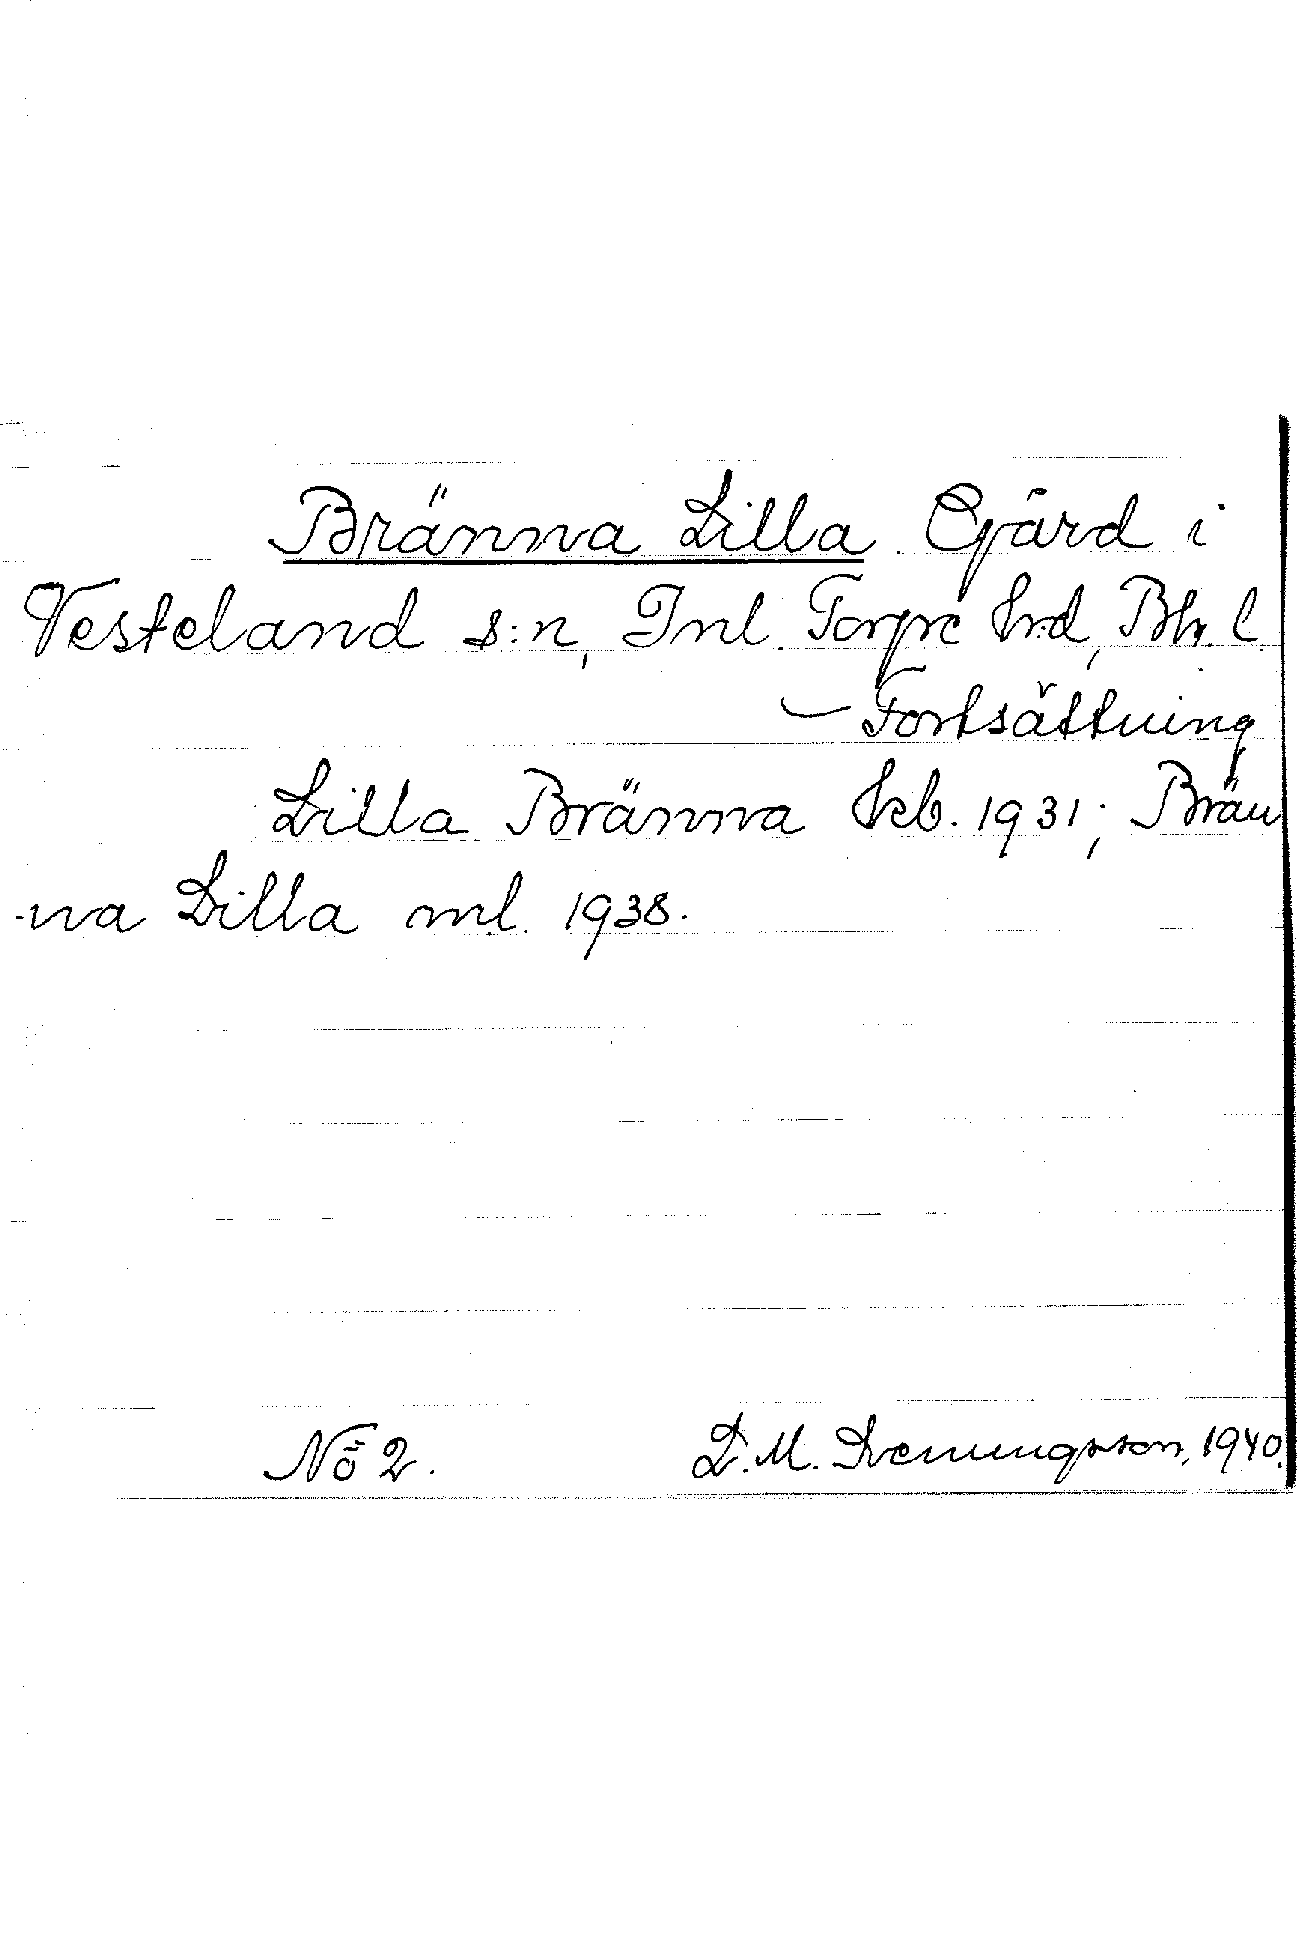 Bränna Lilla. Gård i
Vesteland s:n, Inl. Torpe hrd, Bh. l.
— Fortsättning
Lilla Bränna kb. 1931; Brän
-na Lilla ml. 1938.
No 2. D. M. Svenungsson, 1940.